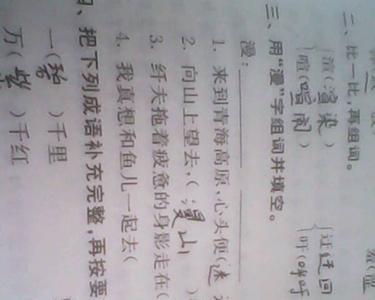 二、比一比,再组词。
渲(渲染) 迂(迂回
喧(喧闹) 吁(呼吁
三、用“漫”字组词并填空。
漫:
1. 来到青海高原,心头便(迷
2. 向山上望去,(漫山
3. 纤夫拖着疲惫的身影走在(
4. 我真想和鱼儿一起去(
、把下列成语补充完整,再按要
一(碧)千里
万(紫)千红